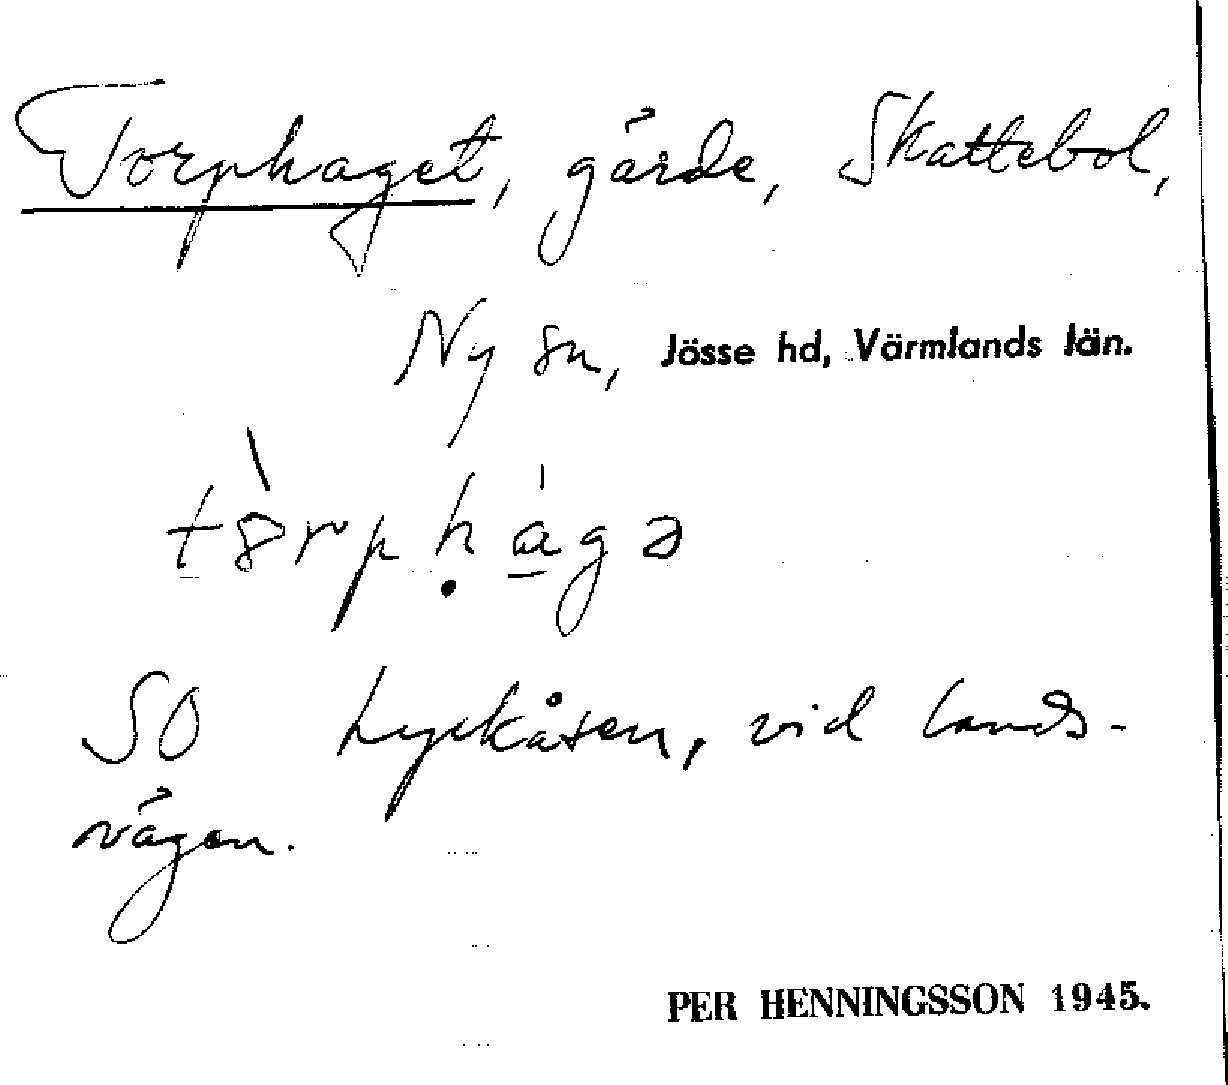 Torphaget, gärde, Skattebol,
Ny sn, Jösse hd, Värmlands län.
tȣ̀rpḥa̲̍gə
SO Lyckåsen, vid lands-
vägen.
PER HENNINGSSON 1945.